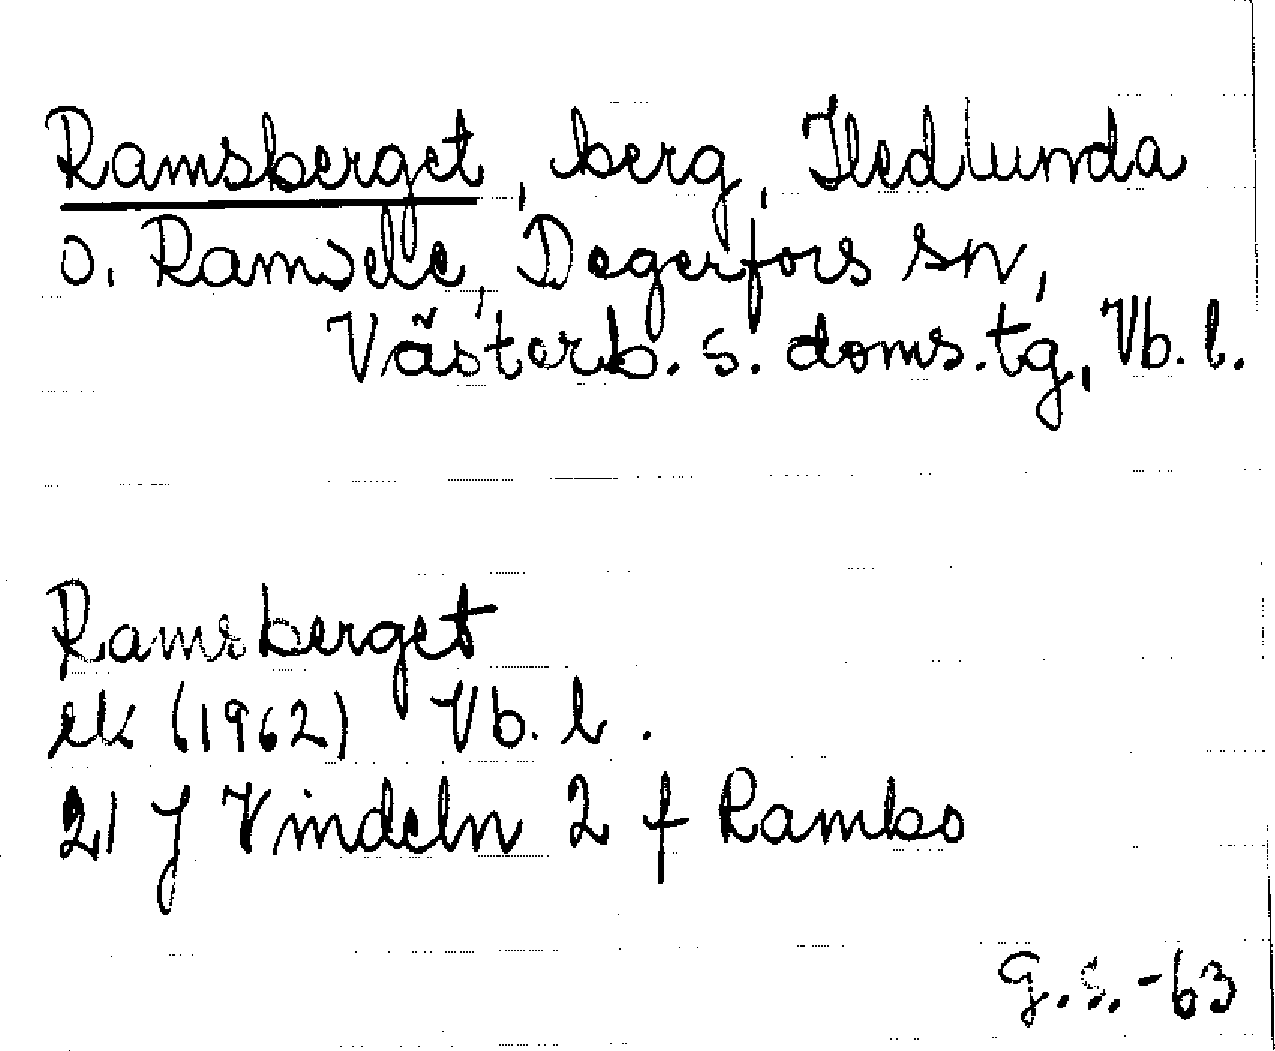 Ramsberget, berg, Hedlunda
o. Ramsele, Degerfors sn,
Västerb. s. doms.tg, Vb. l.
Ramsberget
ek (1962) Vb. l.
21 J Vindeln 2 f Rambo
G.S. -63